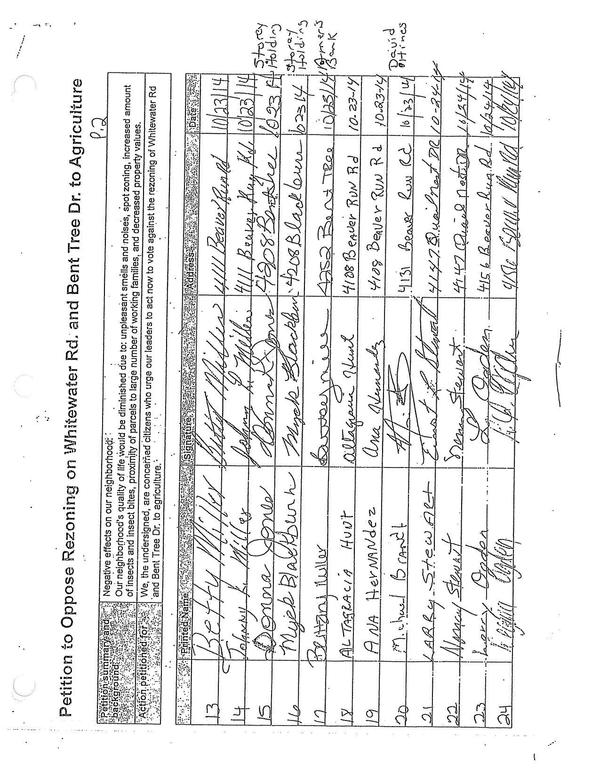 Petition to Oppose Rezoning on Whitewater Rd. and Bent Tree Dr. to Agriculture
p.2
Petition summary and background: Negative effects on our neighborhood:
Our neighborhood's quality of life would be diminished due to: unpleasant smells and noises, spot zoning, increased amount
of insects and insect bites, proximity of parcels to large number of working families, and decreased property values.
Action petitioned for: We, the undersigned, are concerned citizens who urge our leaders to act now to vote against the rezoning of Whitewater Rd
and Bent Tree Dr. to agriculture.
Printed Name Signature Address Date
13 Betty Miller Betty Miller 4111 Beaver Run Rd 10/23/14
14 Johnnie L. Miller 4111 Beaver Run Rd 10/23/14
15 Donna Jones Donna Jones 4208 Bent Tree 10/23 Storey Holding
16 Myck Blackburn Myck Blackburn 4208 Blackburn 102314 Storey Holding
17 Brittany Miller 4252 Bent Tree 10/25/14 Farmer's Bank
18 ALTAGRACIA HUNT Altagracia Hunt 4108 Beaver RUN Rd 10-23-14
19 ANA HERNANDEZ Ana Hernandez 4108 Beaver RUN Rd 10-23-14
20 Michael Brandt 4131 Beaver Run Rd 10/23/14 David Hines
21 LARRY STEWART 4147 Quail Nest DR 10-24-14
22 Nancy Stewart Nancy Stewart 4147 Quail Nest DR 10/24/14
23 Larry Ogden L Ogden 4156 Beaver Run Rd 10/24/14
24 Ogden 4156 Beaver Run Rd 10/24/14